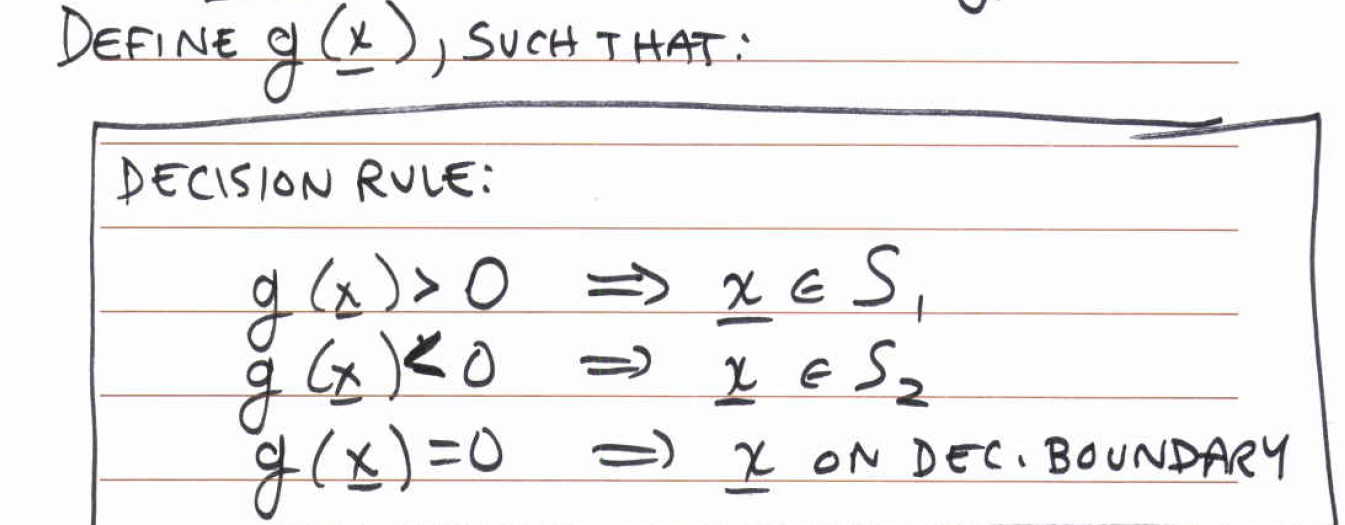 DEFINE g(x), SUCH THAT:
DECISION RULE:
g(x) > 0 ⟹ x ∈ S₁
g(x) < 0 ⟹ x ∈ S₂
g(x) = 0 ⟹ x ON DEC. BOUNDARY